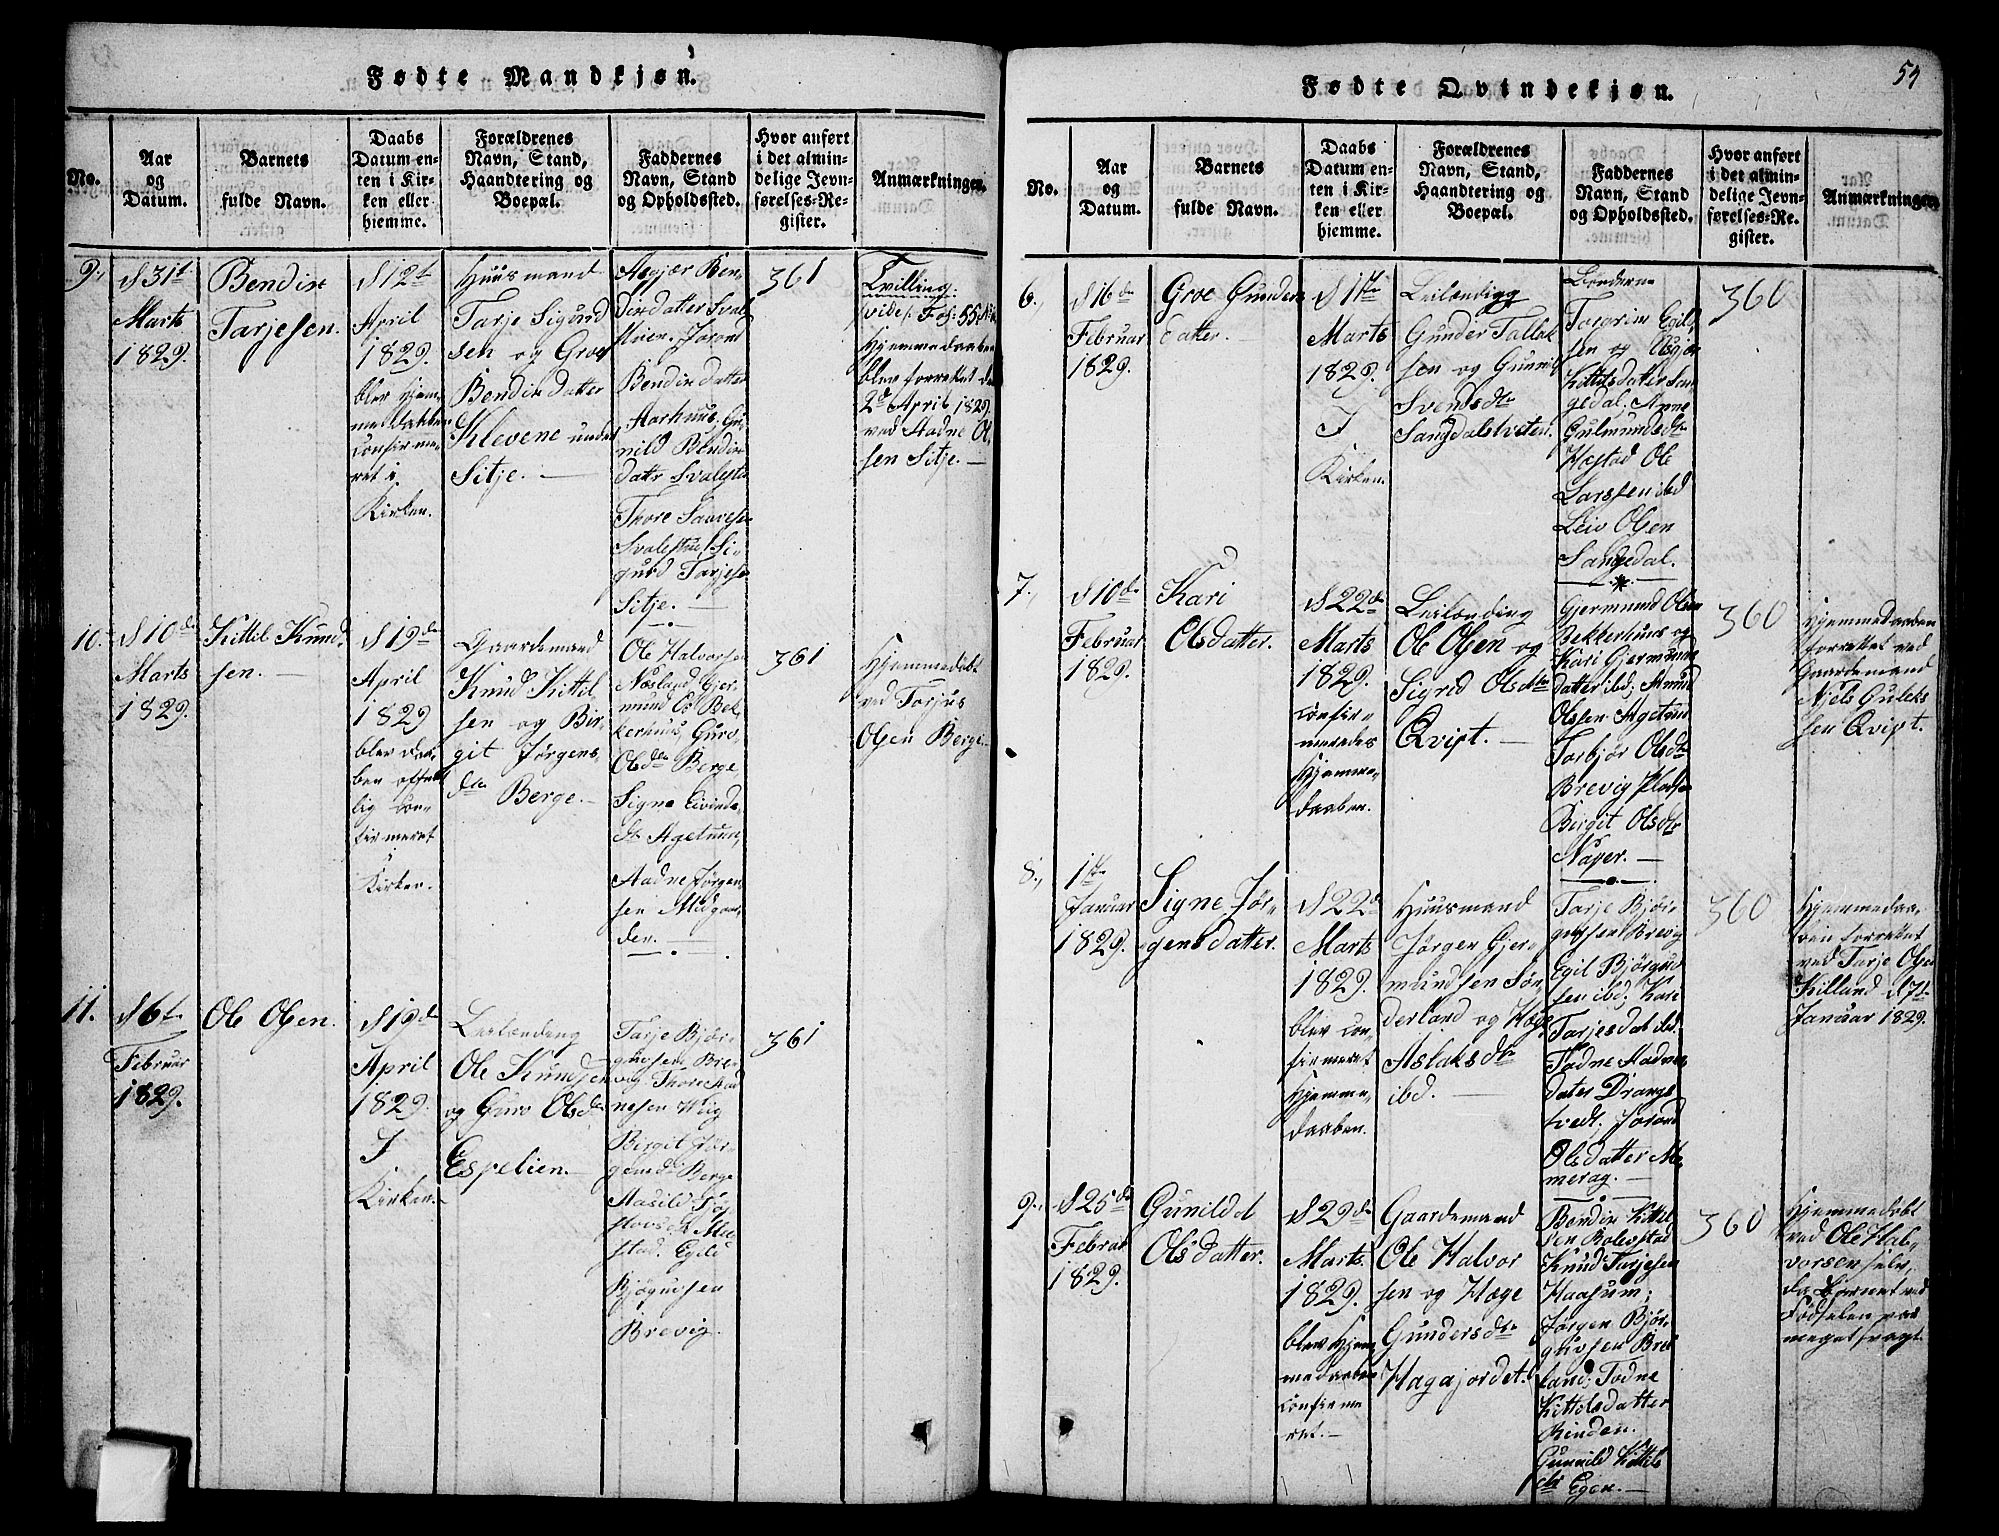 Fødte Mandkjøn.
No.
Aar
og
Datum.
Barnets
fulde Navn.
Daabs
Datum en-
ten i Kir-
ken eller
hjemme.
Forældrenes
Navn, Stand,
Haandtering og
Boepæl.
Faddernes
Navn, Stand
og Opholdssted.
Hvor anført
i det almin-
delige Jevn-
førelses-Re-
gister.
Anmærkninger.
9.,
d 31t
Marts
1829.
Bendix
Tarjesen.
d 12t
April
1829.
blev hjem-
medaaben
confirme-
ret i
Kirken.
Huusmand
Tarje Sigurd
sen og Groe
Bendixdatter
Klevene under
Sitje.
Asgjær Ben-
dixdatter Sval-
Jorond
Bendixdatter
Aarhuus, Gu-
nild Bendix
datr Svalestu
Thore Saavesen
Svalestue, Si-
gurd Tarjesen
Sitje.
361
Tvilling.
vides. Fol: 55.
Hjemmedaaben
blev forrettet d
2d April 1829.
ved Aadne Ol
sen Sitje.
10.
d 10de
Marts
1829.
Kittil Knud-
sen.
d 19de
April
1829
blev daa-
ben offent
lig con-
firmeret
Kirken.
Gaardemand
Knud Kittil
sen og Bir-
git Jørgens
dr Berge.
Ole Halvorsen
Næsland, Gjer-
mund Ol Bek-
kerhuus, Guro
Olsdr Berge,
Signe Eivinds-
dr Agetuun,
Aadne Jørgen-
sen Midgaar-
den.
361
Hjemmedøbt
ved Torjus
Olsen Berge.
11.
d 6te
Februar
1829.
Ole Olsen.
d 19de
April
1829.
I
Kirken.
Leilænding
Ole Knudsen
og Guro Olsdr
Espelien.
Tarje Bjør-
gusen Bre-
vig, Thore Aad
nesen Wiig
Birgit Jør-
gensdr Berge
Aasild
stad. Egild
Bjøgusen
Brevig.
361
54
Fødte Qvindekjøn.
No.
Aar
og
Datum.
Barnets
fulde Navn.
Daabs
Datum en-
ten i Kir-
ken eller
hjemme.
Forældrenes
Navn, Stand,
Haandtering og
Boepæl.
Faddernes
Navn, Stand
og Opholdssted.
Hvor anført
i det almin-
delige Jevn-
førelses-Re-
gister.
Anmærkninger.
6.,
d 16de
Februar
1829.
Groe Gunders
datter.
d 1ste
Marts
1829.
I
Kirken.
Leilænding
Gunder Tallak
sen og Gunnild
Svendsdtr
Sangdalstveten.
Torgrim Egild
sen og Asgjær
Kittilsdatter San
gedal. Anne
Gulmundsdtr
Hæstad Ole
Larssen ibd
Leiv Olsen
Sangedal.
360
7.,
d 10de
Februar
1829.
Kari
Olsdatter.
d 22de
Marts
1829.
confir-
meredes
Hjemme-
daaben.
Leilænding
Ole Olsen og
Sigrid Olsdtr
Qvist.
Gjermund Olsen
Bekkerhuus og
Kari Gjermunds
datter ibd; Amund
Olssen Agetuun
Torbjør Olsdtr
Brevig Pladsen
Birgit Olsdtr
Naper.
360
Hjemmedaaben
forrettet ved
Gaardemand
Niels Guleks
sen Qvist.
8.,
1ste
Januar
1829.
Signe Jør-
gensdatter.
d 22de
Marts
1829.
blev con-
firmeret
Hjemme-
daaben.
Huusmand
Jørgen Gjer
mundsen Søn-
derland og Hæge
Aslaksdtr
ibd.
Tarje Bjør-
gufsen Brevig
Egil Bjørgud
sen ibd; Kari
Tarjesdat ibd.
Todne Aadnes
dater Drangs
tvedt; Jorond
Olsdatter Mo-
merag.
360
Hjemmedaa-
ben forrettet
ved Tarje Olsen
Killand d 7t
Januar 1829.
9.,
d 25de
Februar
1829.
Gunild
Olsdatter.
d 29de
Marts
1829.
blev Hjem
medaaben
confirme
ret.
Gaardemand
Ole Halvor
sen og Hæge
Gundersdtr
Hagajordet.
Bendix Kittel
sen Bolevstad
Knud Tarjesen
Haasum;
Jørgen Bjør-
gufsen Brei
land; Todne
Kittolsdatter
Rinden.
Gunnild Kittels
dtr Egen.
360
Hjemmedøbt
ved Ole Hal-
vorsen selv,
da Barnet ved
Fødselen var
meget svagt.